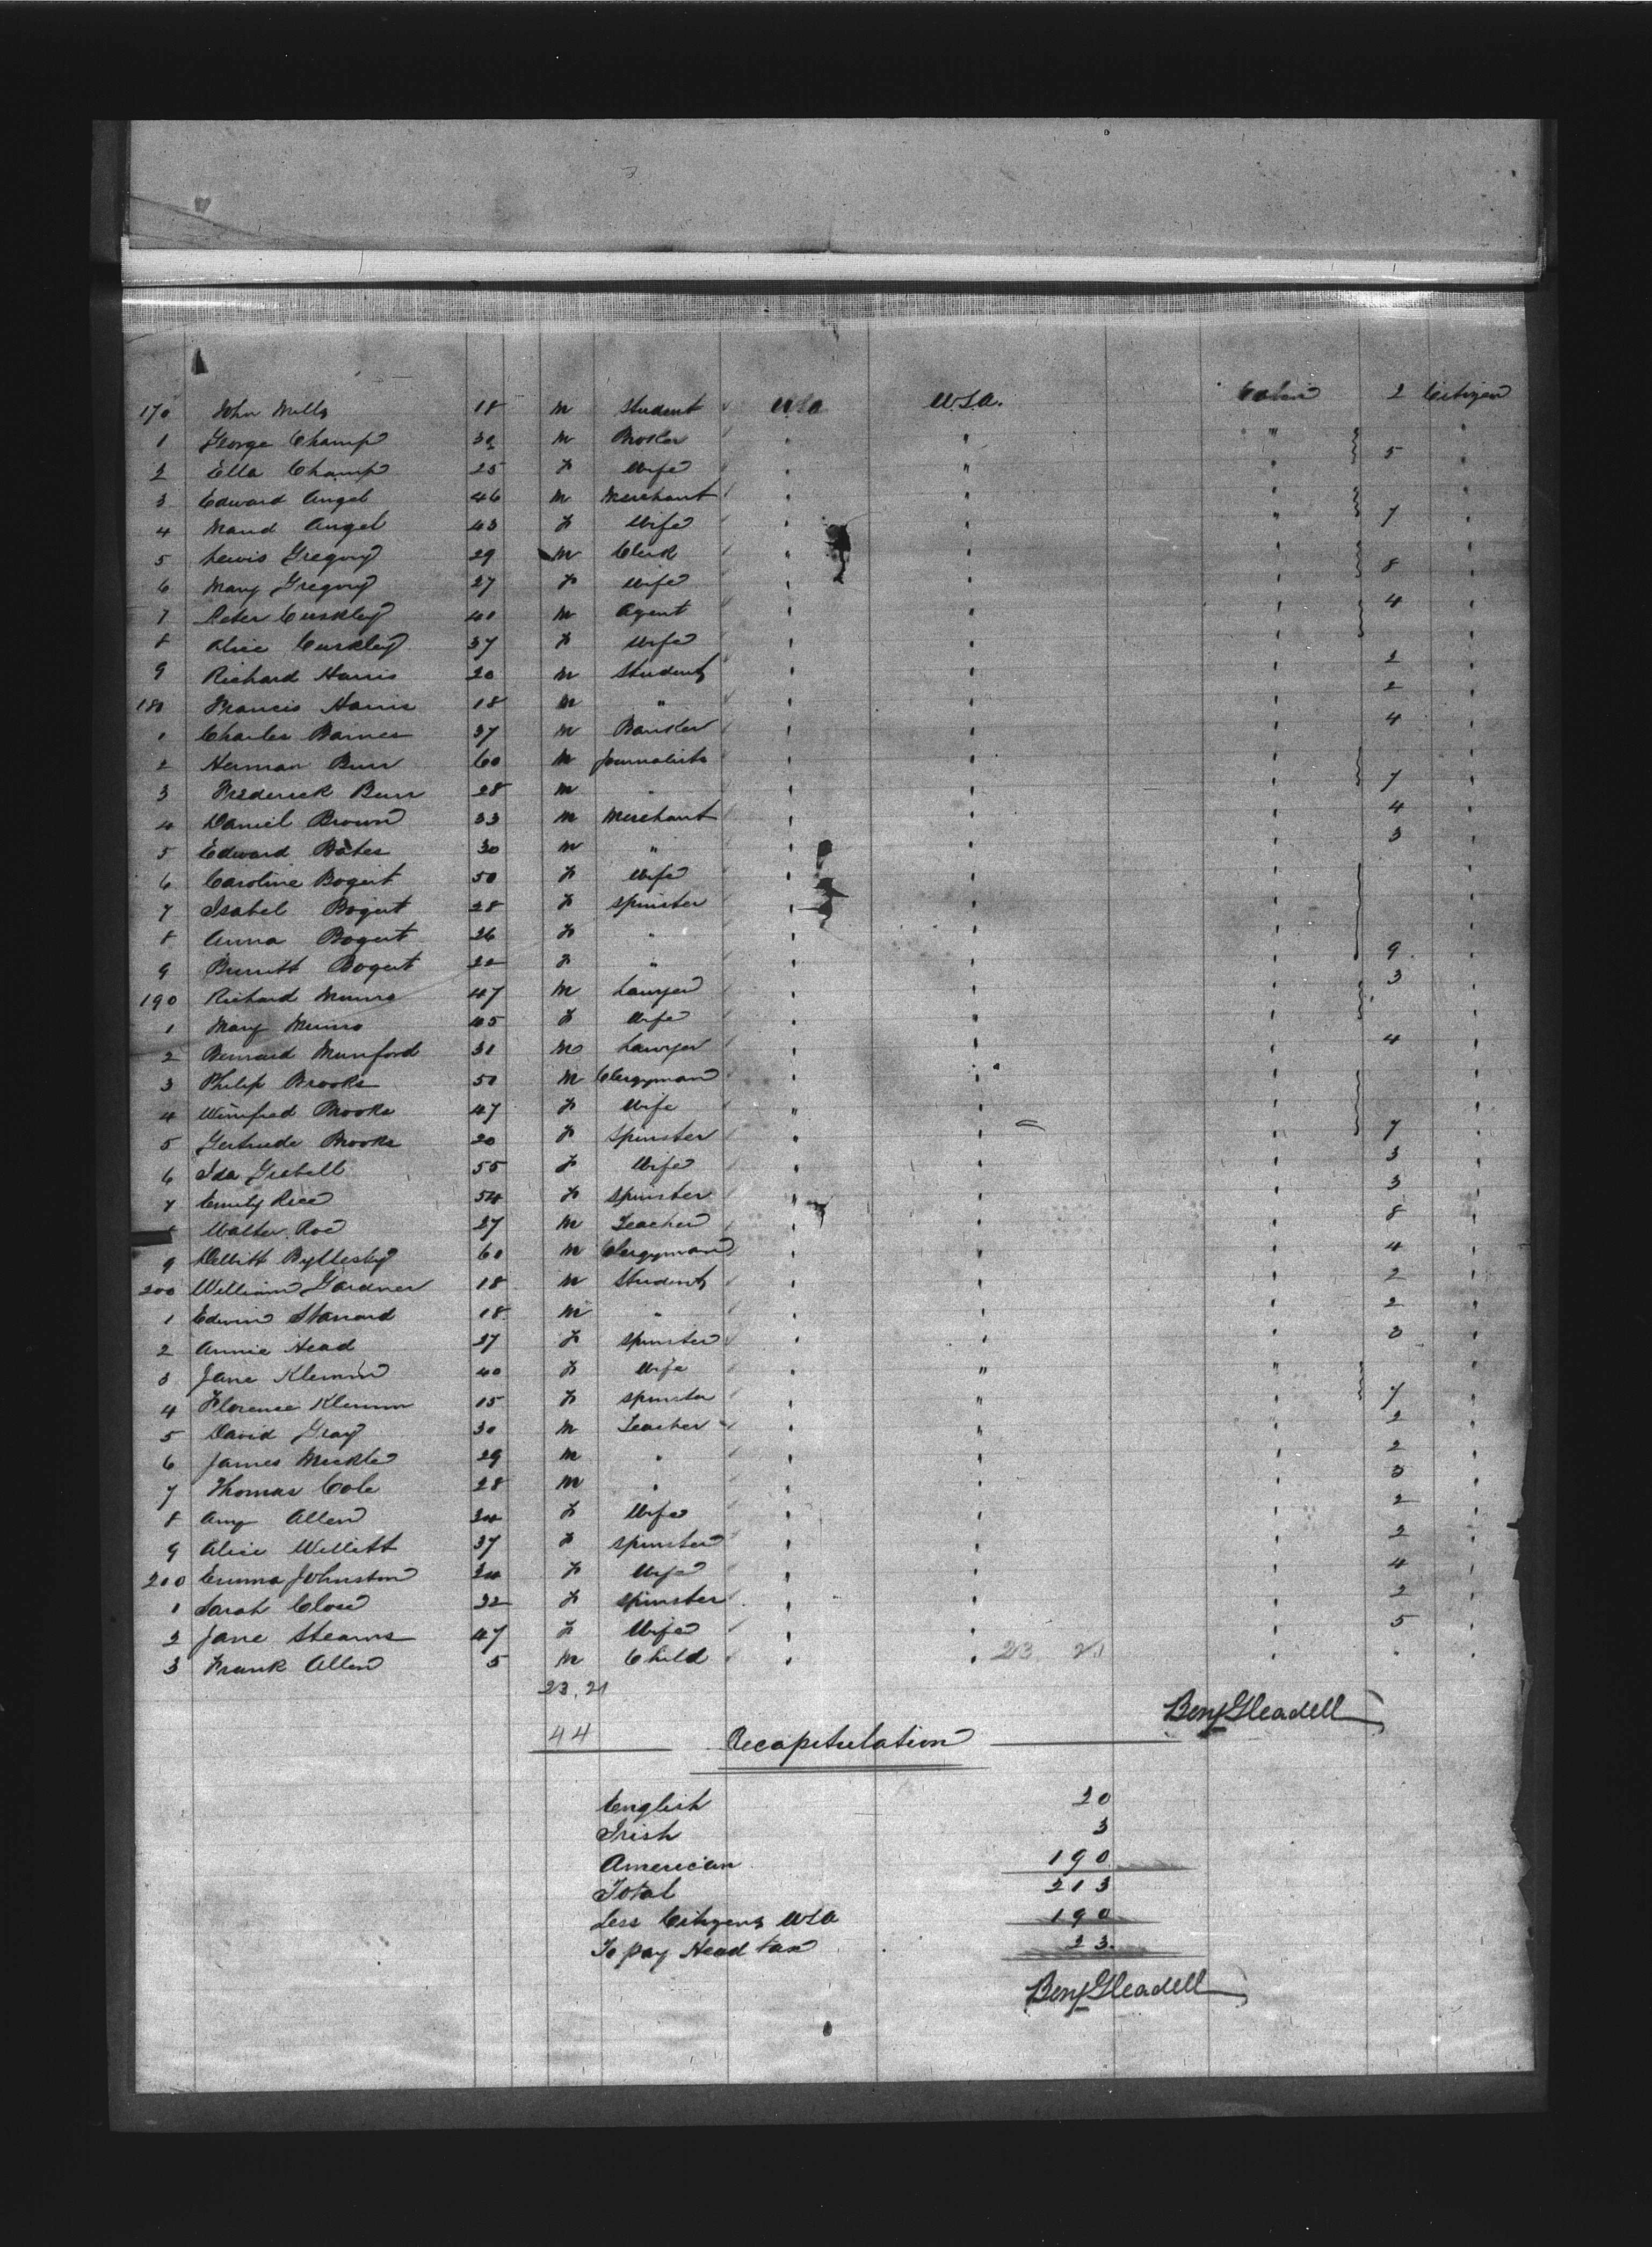 170 John Mills 18 m Student USA USA. Cabin 2 Citizen
1 George Champ 32 m Broker " " " "
2 Ella Champ 25 F Wife " " " 5 "
3 Edward Angel 46 m Merchant " " " "
4 Maud Angel 43 F Wife " " " 7 "
5 Lewis Gregory 29 m Clerk " " " "
6 Mary Gregory 27 F Wife " " " 8 "
7 Peter Cuskley 40 m Agent " " " 4 "
8 Alice Cuskley 37 F Wife " " " "
9 Richard Harris 20 m Student " " " 2 "
180 Francis Harris 18 m " " " " 2 "
1 Charles Barnes 37 m Banker " " " 4 "
2 Herman Burr 60 m Journalist " " " "
3 Frederick Burr 28 m " " " " 7 "
4 Daniel Brown 33 m Merchant " " " 4 "
5 Edward Bates 30 m " " " " 3 "
6 Caroline Bogert 50 F Wife " " " "
7 Isabel Bogert 28 F Spinster " " " "
8 Anna Bogert 26 F " " " " "
9 Bogert 22 F " " " " 9 "
190 Richard Munro 47 m Lawyer " " " 3 "
1 Mary Munro 45 F Wife " " " "
2 Bernard Munford 31 m Lawyer " " " 4 "
3 Philip Brooks 50 m Clergyman " " " "
4 Winifred Brooks 47 F Wife " " " "
5 Gertrude Brooks 20 F Spinster " " " 7 "
6 Ida 55 F Wife " " " 3 "
7 Emily Rice 54 F Spinster " " " 3 "
8 Walter Roe 27 m Teacher " " " 8 "
9 DeWitt Byllesby 60 m Clergyman " " " 4 "
200 William Gardner 18 m Student " " " 2 "
1 Edwin Stanard 18 m " " " " 2 "
2 Annie Head 27 F Spinster " " " 3 "
3 Jane Klemm 40 F Wife " " " "
4 Florence Klemm 15 F Spinster " " " 7 "
5 David Gray 30 m Teacher " " " 2 "
6 James Meikle 29 m " " " " 2 "
7 Thomas Cole 28 m " " " " 3 "
8 Amy Allen 34 F Wife " " " 2 "
9 Alice Willitt 37 F Spinster " " " 2 "
210 Emma Johnston 34 F Wife " " " 4 "
1 Sarah Close 32 F Spinster " " " 2 "
2 Jane Stearns 47 F Wife " " " 5 "
3 Frank Allen 5 m Child " " 23 21 " "
23. 21
Benj Gleadell
44
Recapitulation
English 20
Irish 3
American 190
Total 213
Less Citizens USA 190
To pay Head tax 23.
Benj Gleadell